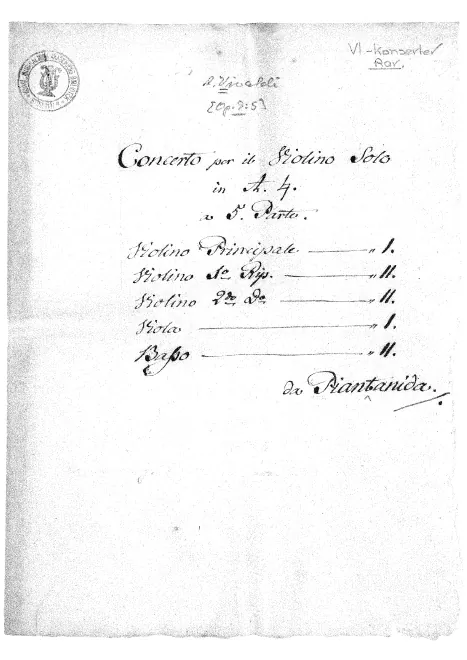 Vl-konserter
Bar.
A. Vivaldi
[Op. 7:5]
Concerto per il Violino Solo
in A. 4.
a 5. Parte.
Violino Principale — " 1.
Violino 1o Rip. — " 11.
Violino 2do Do — " 11.
Viola — " 1.
Basso — " 11.
da Piantanida.